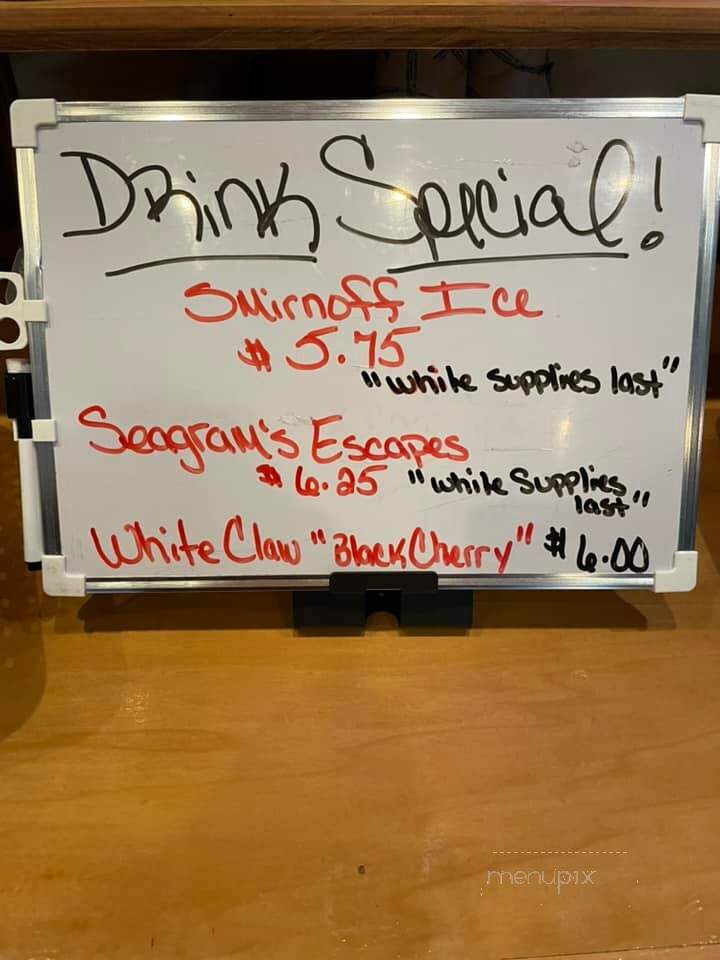 Drink Special!
Smirnoff Ice
$5.75
"while supplies last"
Seagram's Escapes
$6.25 "while Supplies
last"
White Claw "Black Cherry" $6.00
menupix